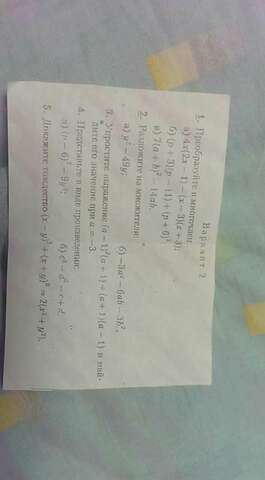 Вариант 2
1. Преобразуйте в многочлен:
а) 4x(2x − 1) − (x − 3)(x + 3);
б) (p + 3)(p − 11) + (p + 6)²;
в) 7(a + b)² − 14ab.
2. Разложите на множители:
а) y³ − 49y; б) −3a² − 6ab − 3b².
3. Упростите выражение (a − 1)²(a + 1) + (a + 1)(a − 1) и най-
дите его значение при a = −3.
4. Представьте в виде произведения:
а) (y − 6)² − 9y²; б) c² − d² − c + d.
5. Докажите тождество (x − y)² + (x + y)² = 2(x² + y²).